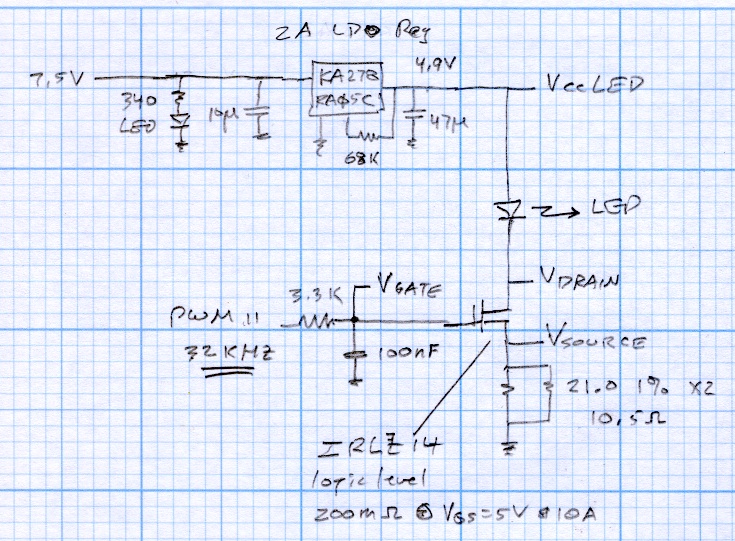 2A LDO Reg
7.5V
KA278
RA05C
4.9V
VCC LED
340
LED
10µ
68K
47µ
LED
VDRAIN
3.3K
VGATE
PWM 11
32KHZ
100nF
VSOURCE
21.0 1% x2
10.5Ω
IRLZ14
logic level
200mΩ @ VGS=5V @ 10A